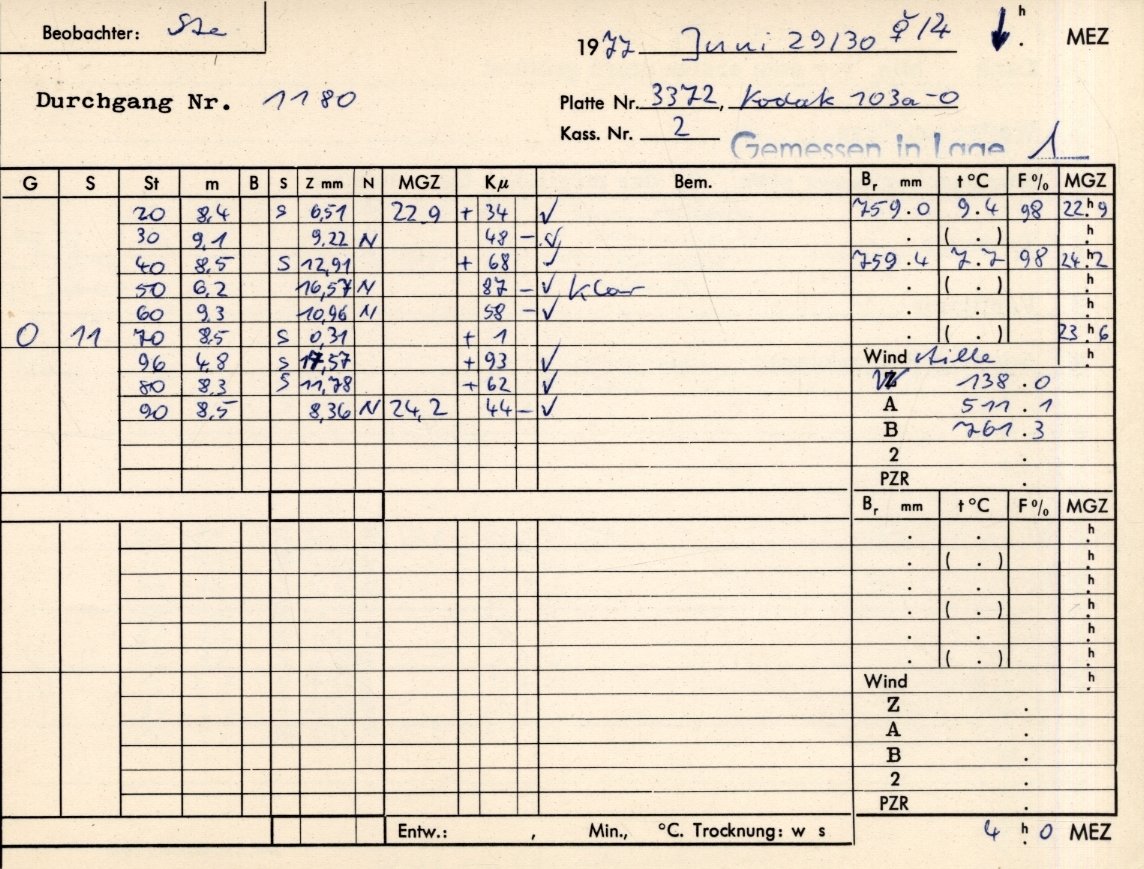 Beobachter: Ste
1977 Juni 29/30 ♀/4 ↓ h . MEZ
Durchgang Nr. 1180
Platte Nr. 3372, Kodak 103a-O
Kass. Nr. 2
Gemessen in Lage 1
G S St m B S Z mm N MGZ Kμ Bem. Br mm t °C F % MGZ
20 8,4 S 6,51 22,9 + 34 ✓ 759.0 9.4 98 22h.9
30 9,1 9,22 N 48 – ✓ . ( . ) h.
40 8,5 S 12,91 + 68 ✓ 759.4 7.7 98 24h.2
50 6,2 16,57 N 87 – ✓ klar . ( . ) h.
60 9,3 10,96 N 58 – ✓ . . h.
0 11 70 8,5 S 0,31 + 1 . ( . ) 23h.6
96 4,8 S 17,57 + 93 ✓ Wind stille h.
80 8,3 S 11,78 + 62 ✓ 138.0
90 8,5 8,36 N 24,2 44 – ✓ A 511.1
B 761.3
2 .
PZR .
Br mm t °C F % MGZ
. . h.
. ( . ) h.
. . h.
. ( . ) h.
. . h.
. ( . ) h.
Wind h.
Z .
A .
B .
2 .
PZR .
Entw.: , Min., °C. Trocknung: w s 4 h. 0 MEZ